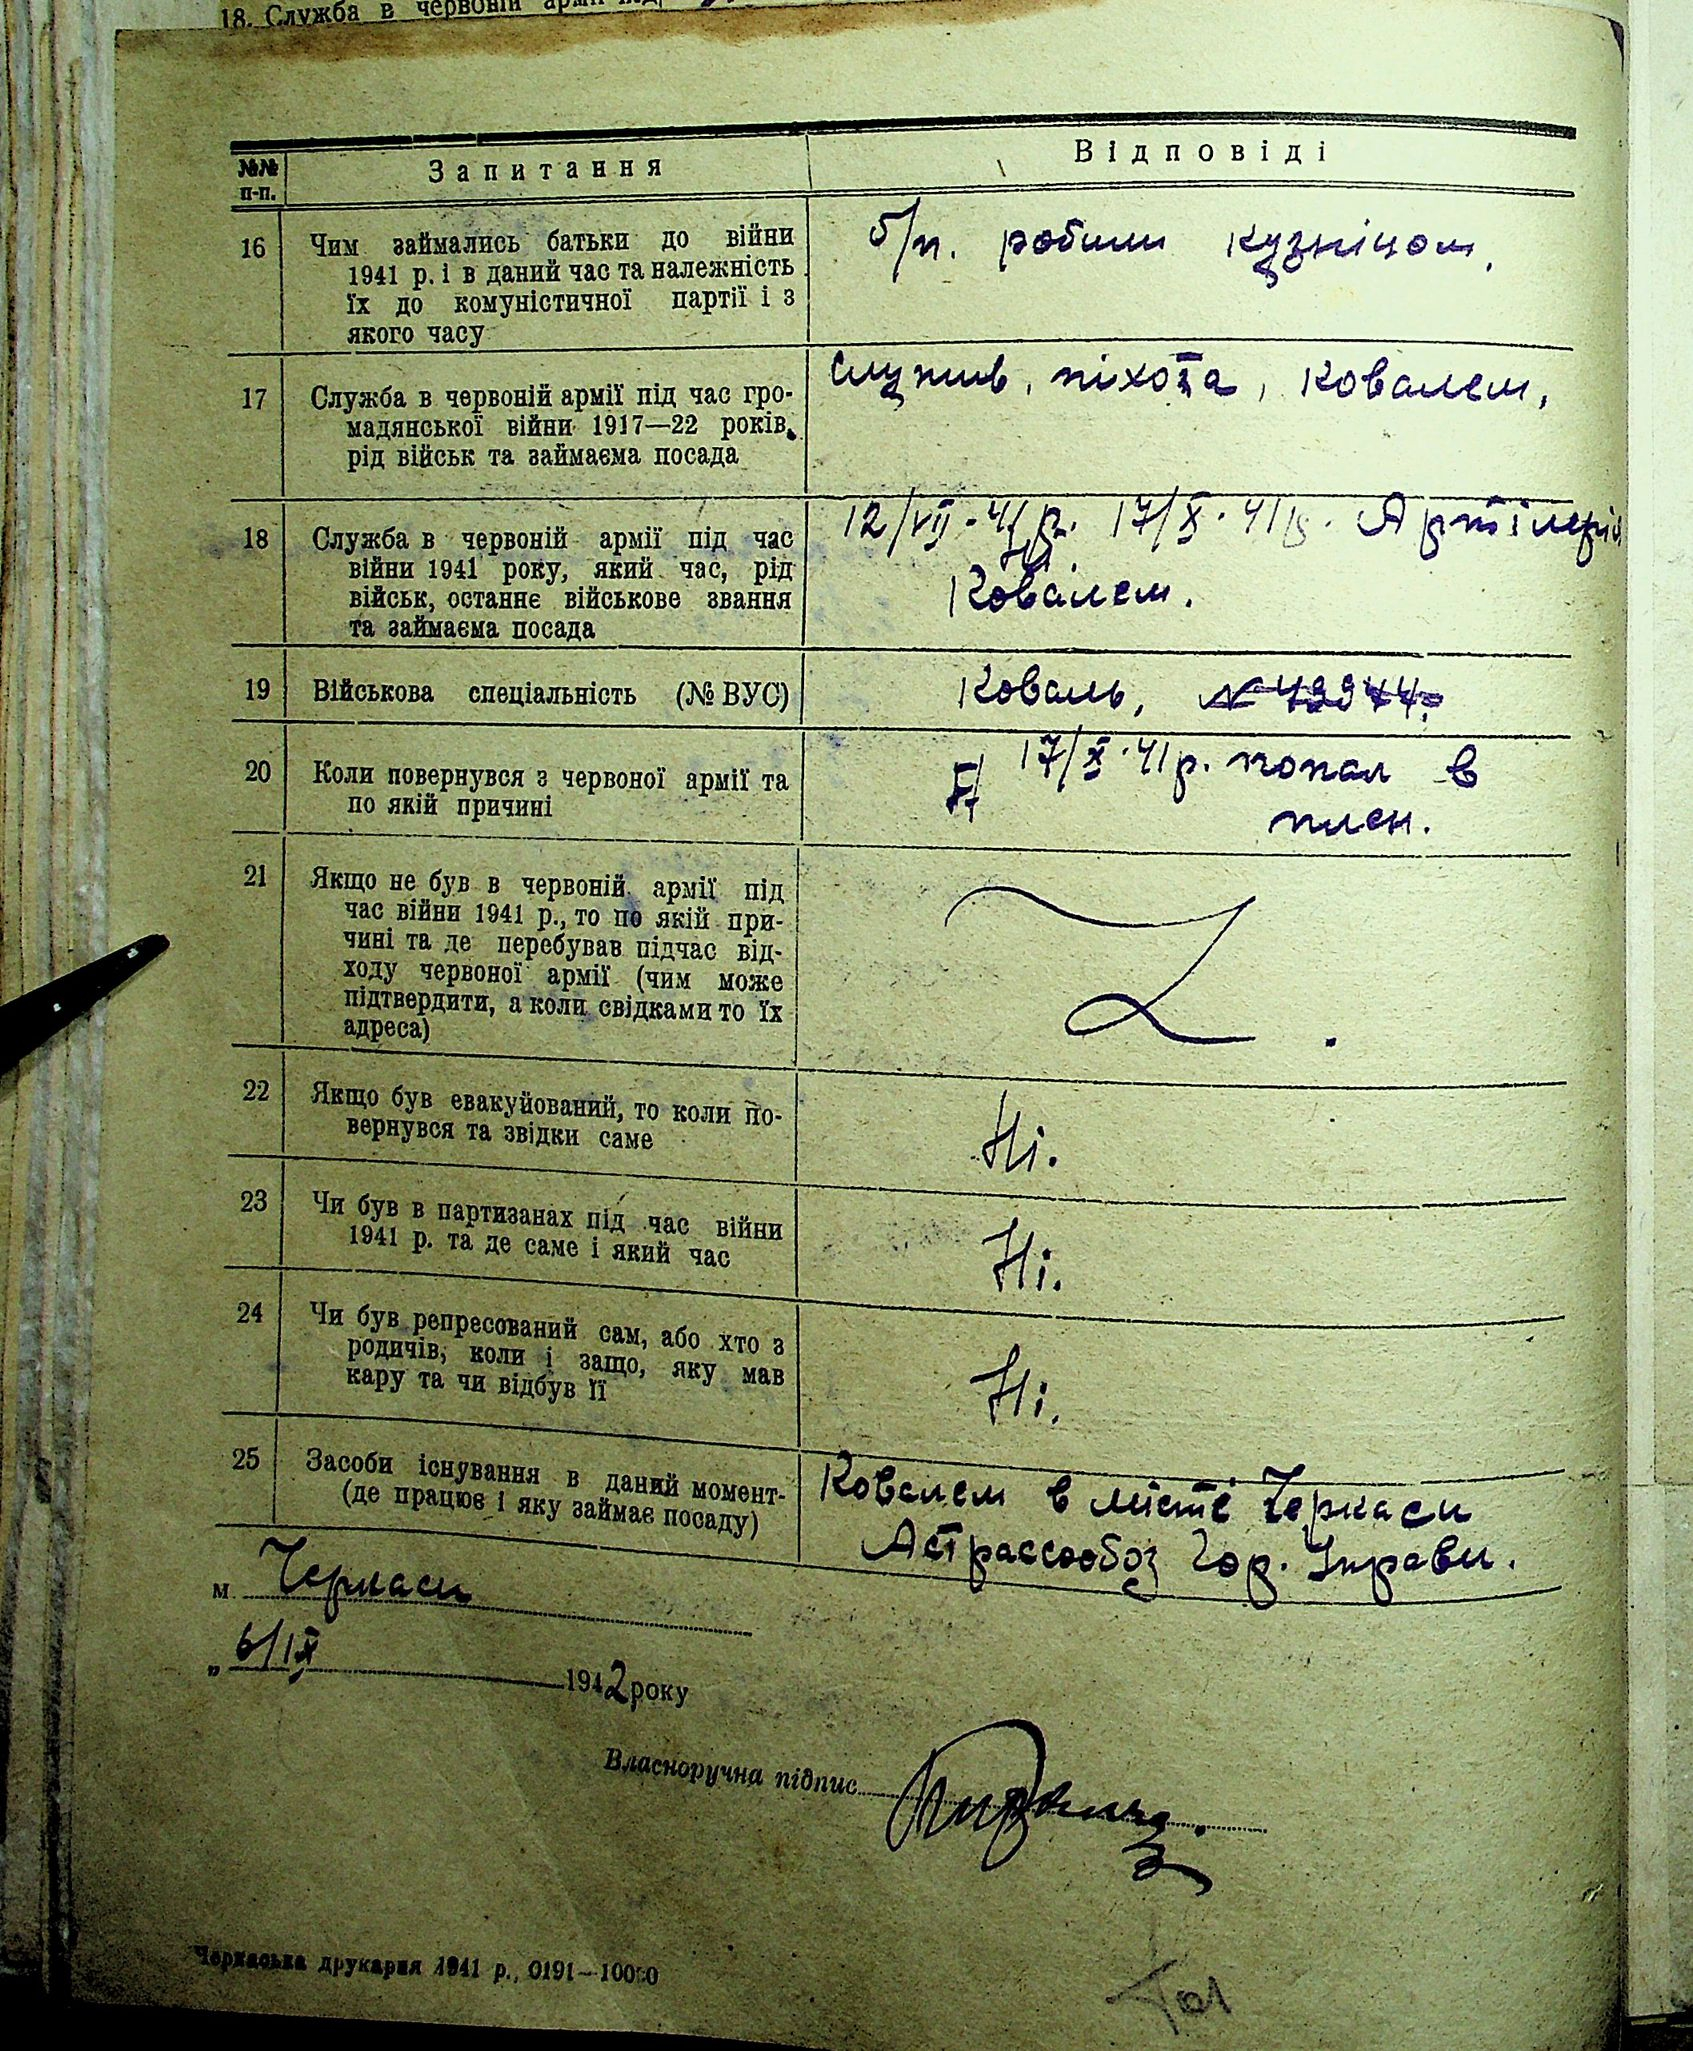 18. Служба в червоній армії під
№№ п-п.
Запитання
Відповіді
16
Чим займались батьки до війни
1941 р. і в даний час та належність
їх до комуністичної партії і з
якого часу
б/п. робили кузніцом.
17
Служба в червоній армії під час гро-
мадянської війни 1917—22 років,
рід військ та займаєма посада
Служив, піхота, ковалем,
18
Служба в червоній армії під час
війни 1941 року, який час, рід
військ, останнє військове звання
та займаєма посада
12/VII·41р. 17/X·41р. Артілерія
Ковалем.
19
Військова спеціальність (№ ВУС)
Коваль,
20
Коли повернувся з червоної армії та
по якій причині
17/X·41р. попал в
плен.
21
Якщо не був в червоній армії під
час війни 1941 р., то по якій при-
чині та де перебував підчас від-
ходу червоної армії (чим може
підтвердити, а коли свідками то їх
адреса)
22
Якщо був евакуйований, то коли по-
вернувся та звідки саме
Ні.
23
Чи був в партизанах під час війни
1941 р. та де саме і який час
Ні.
24
Чи був репресований сам, або хто з
родичів, коли і защо, яку мав
кару та чи відбув її
Ні.
25
Засоби існування в даний момент-
(де працює і яку займає посаду)
Ковалем в місті Черкаси
Астрассообоз Гор. Управи.
м. Черкаси
„ 6/IX 1942 року
Власноручна підпис
Черкаська друкарня 1941 р., 0191—10000